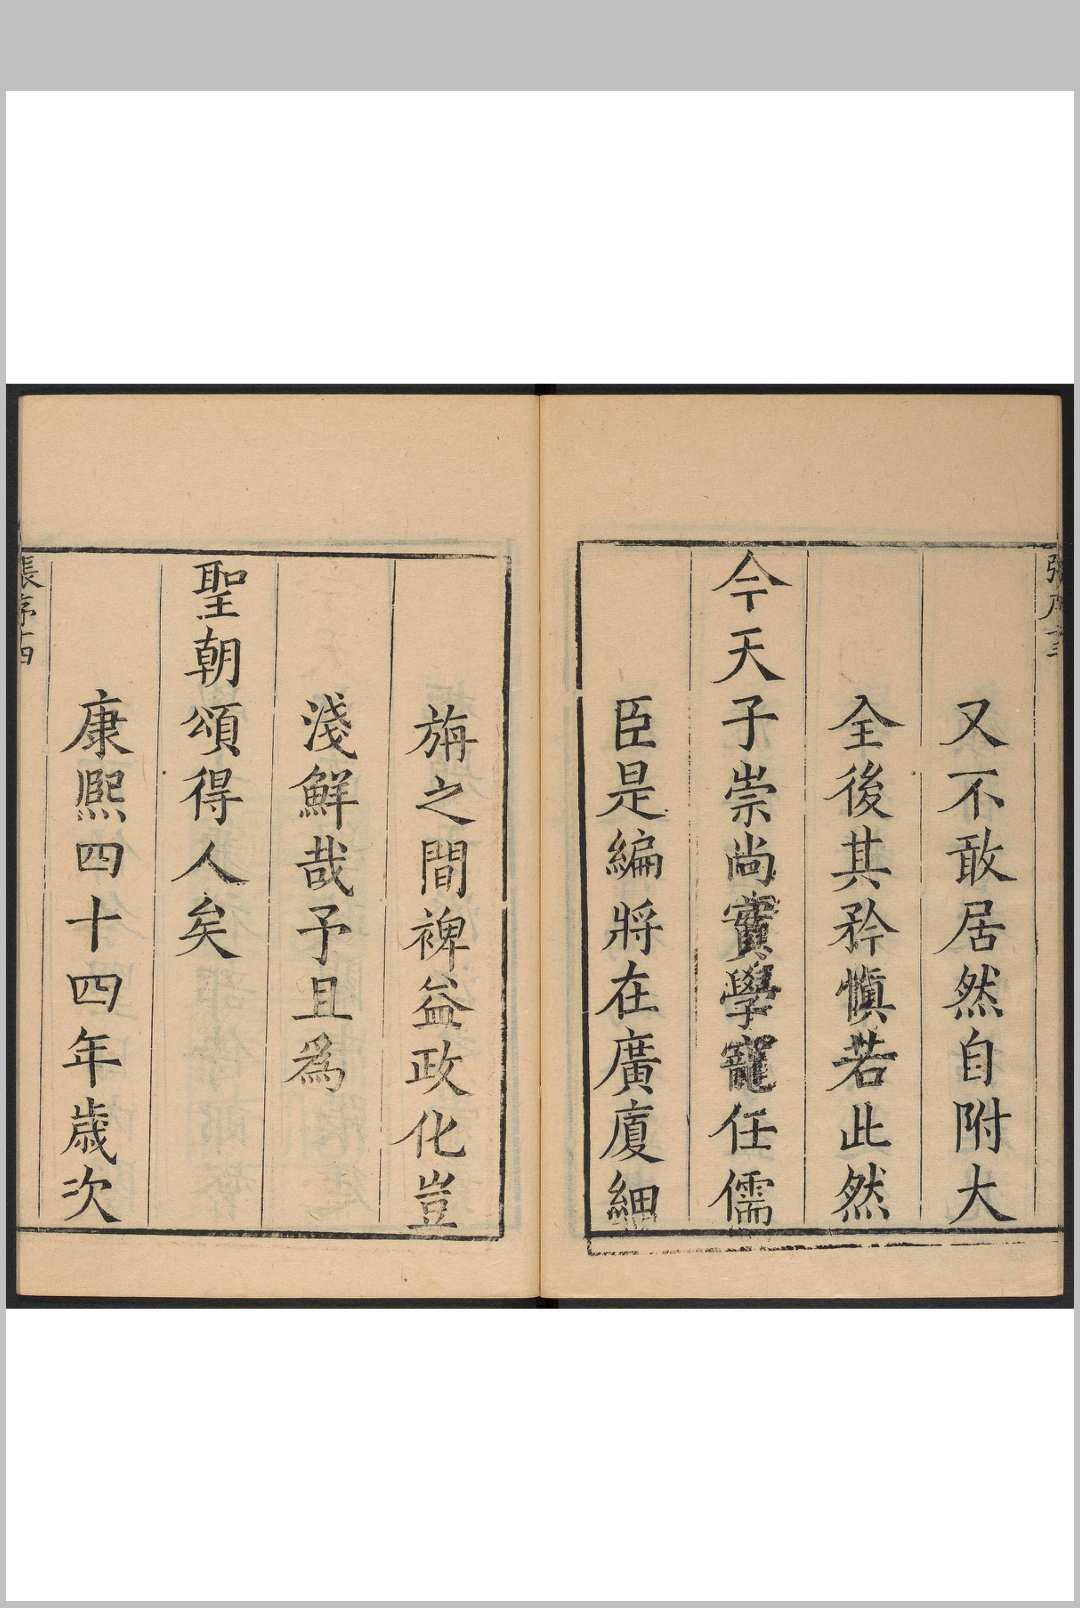 又不敢居然自附大
全後其矜慎若此然
今天子崇尚實學寵任儒
臣是編將在廣廈細
旃之間裨益政化豈
淺鮮哉予且爲
聖朝頌得人矣
康熙四十四年歲次
張序 四